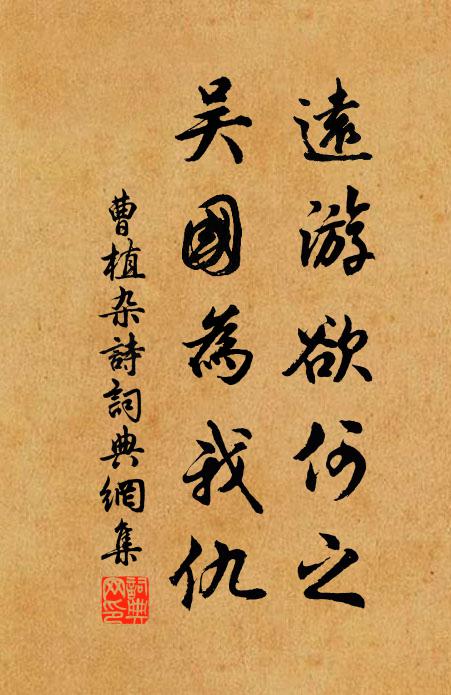 遠游欲何之
吳國為我仇
曹植杂詩詞典網集
詞典
网印